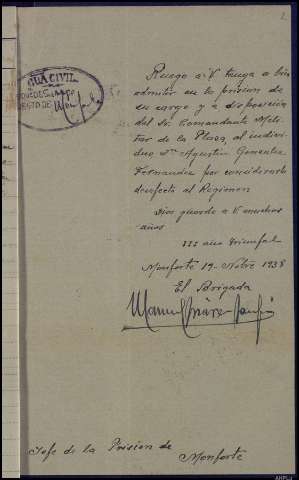 2
GUA. CIVIL.
PUESTO DE Monforte
Ruego a V. tenga a bien
admitir en la prision de
su cargo y a disposición
del Sr. Comandante Mili-
tar de la Plaza, al indivi-
duo Dn Agustin Gonzalez
Fernandez por considerarlo
desafecto al Regimen
Dios guarde a V muchos
años
III año Triunfal
Monforte 19. Nobre 1938
El Brigada
Manuel
Jefe de la Prision de
Monforte
AHPLU